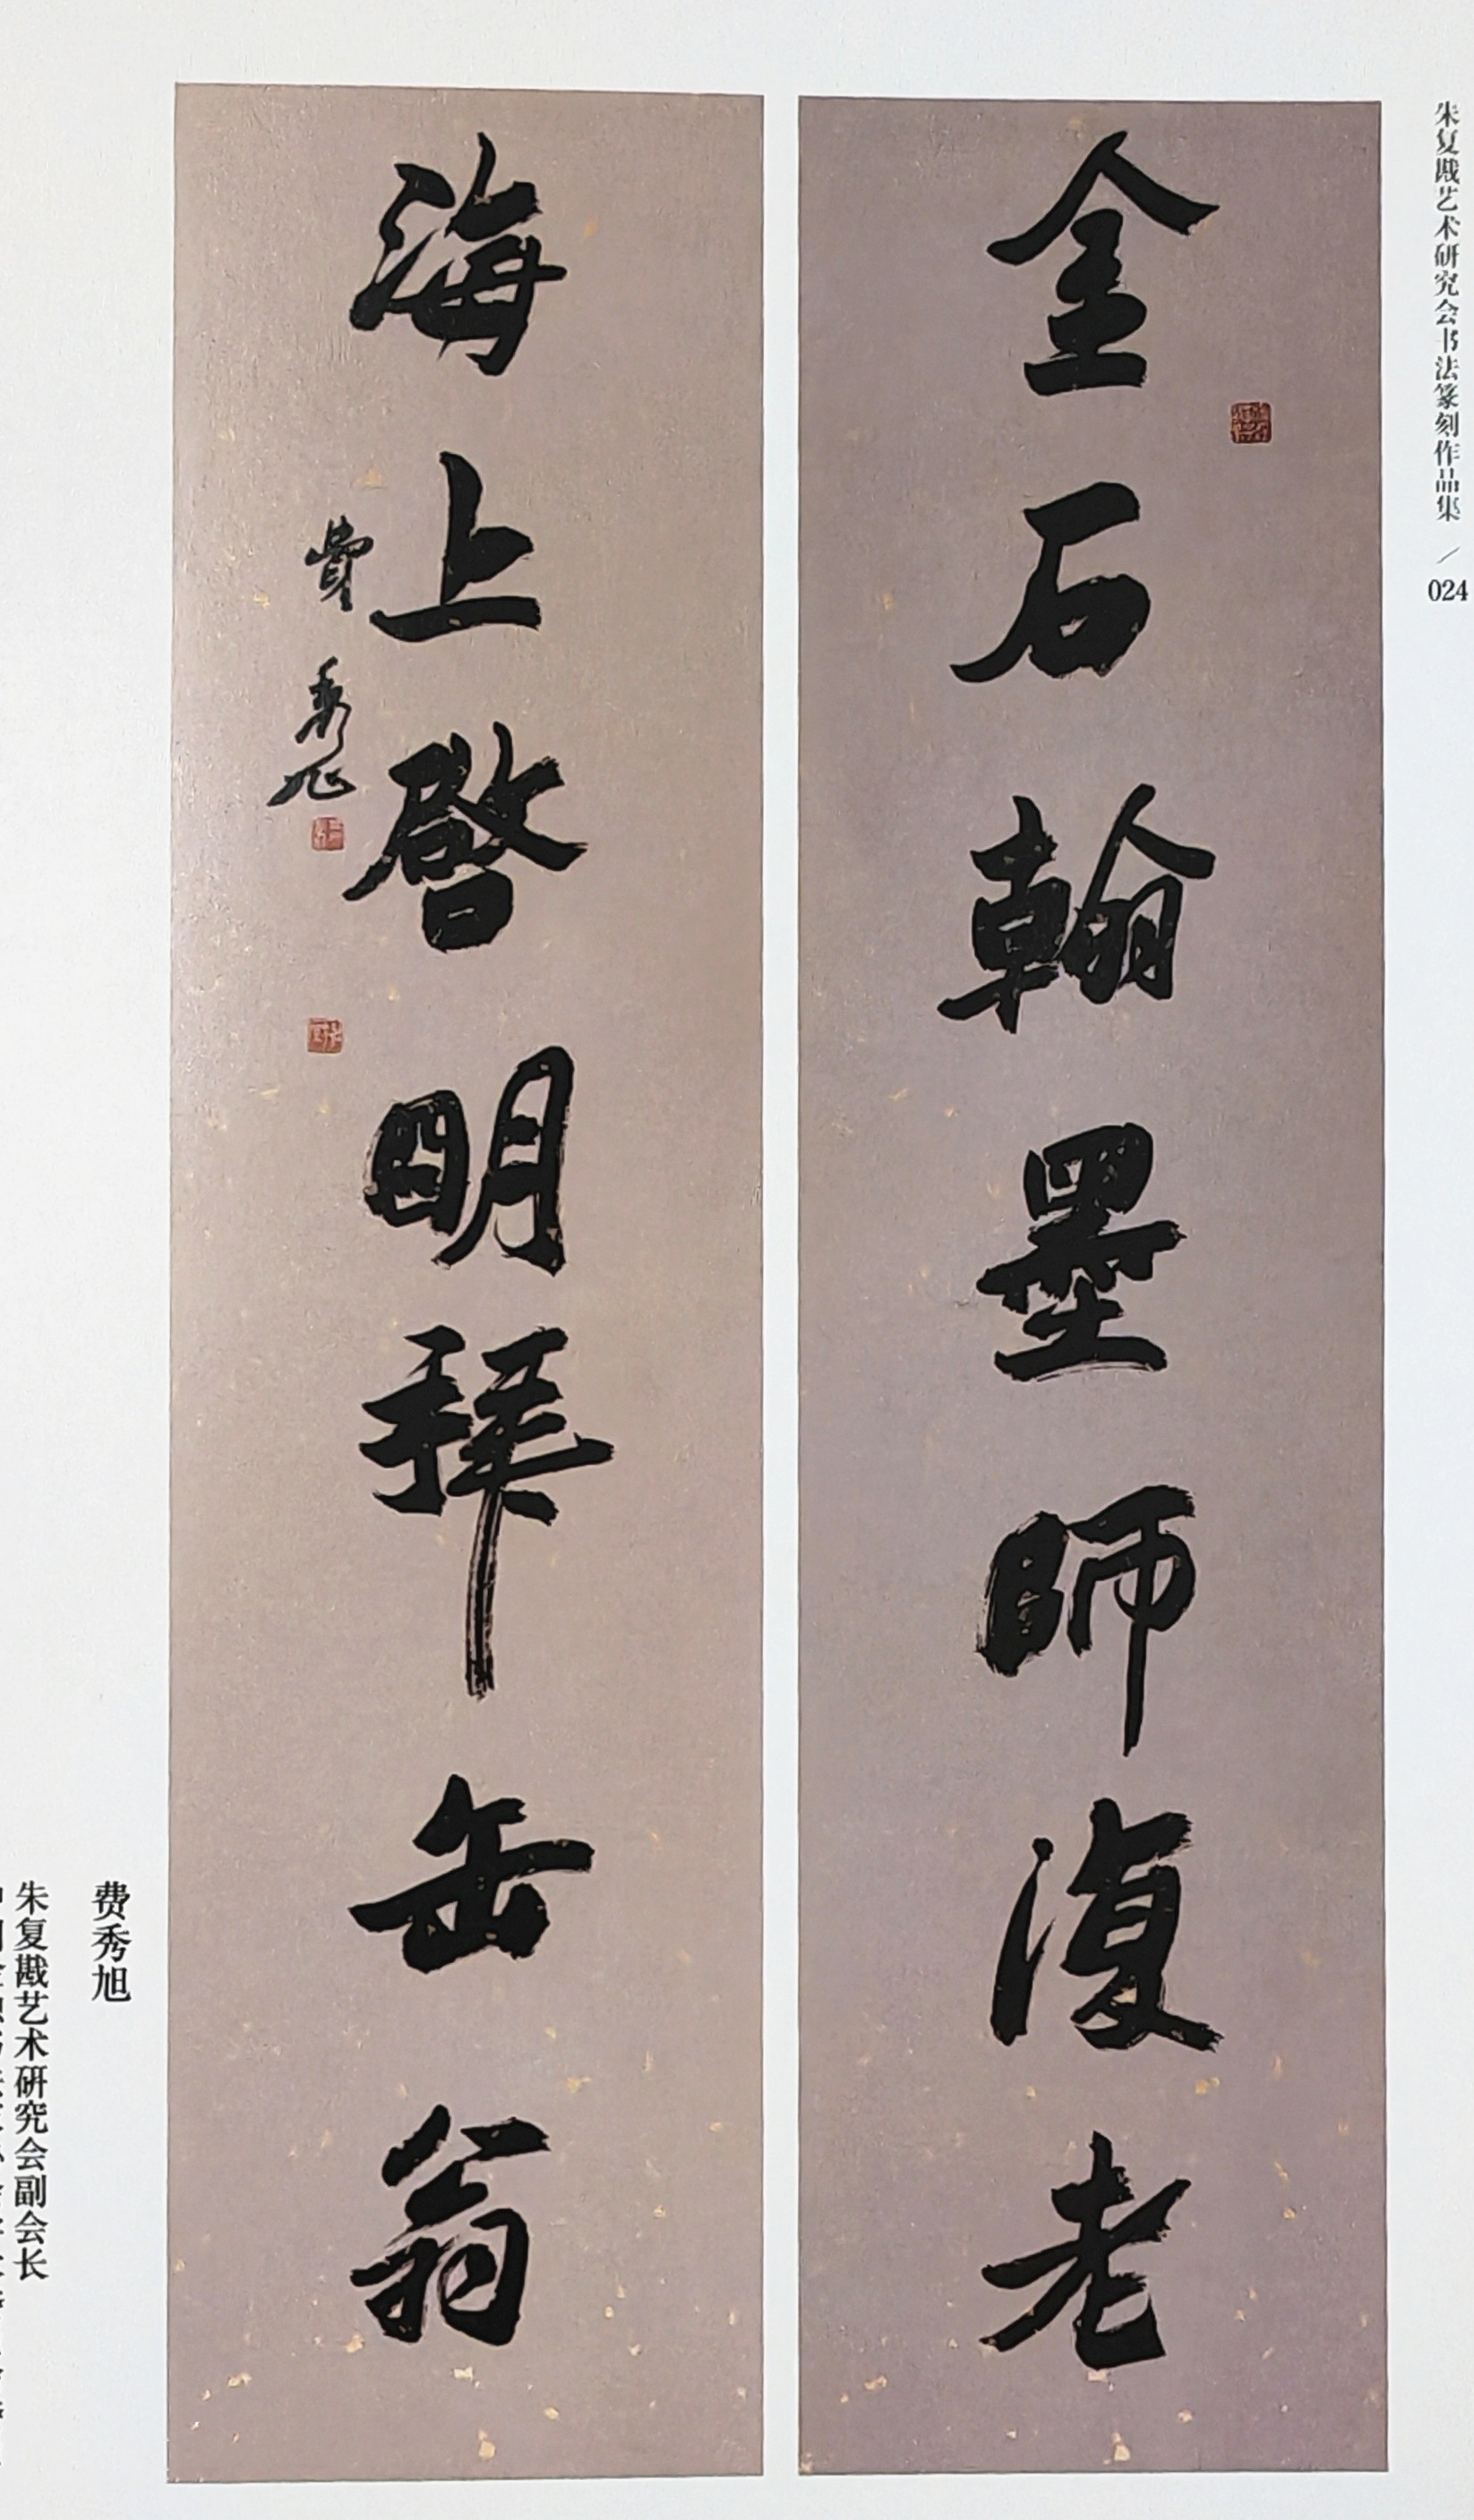 朱复戡艺术研究会书法篆刻作品集 / 024
金石翰墨師復老
海上啓明拜缶翁
費秀旭
费秀旭
朱复戡艺术研究会副会长